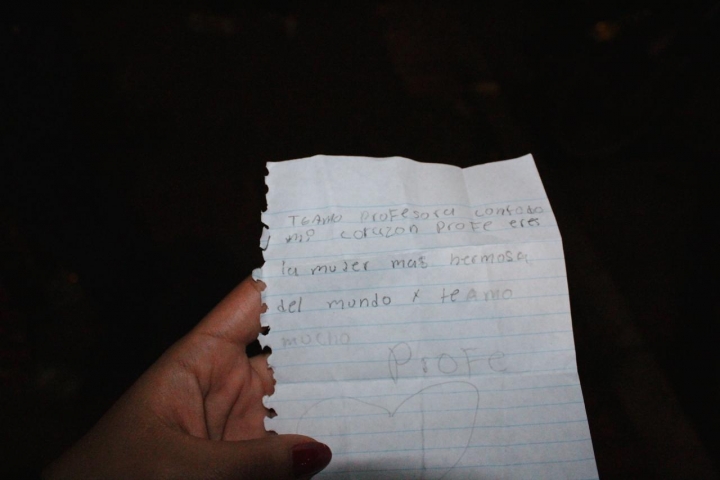 TEAMO profesora contodo
mi corazon profe eres
la muJer mas hermosa
del mundo x teAmo
mucho
Profe